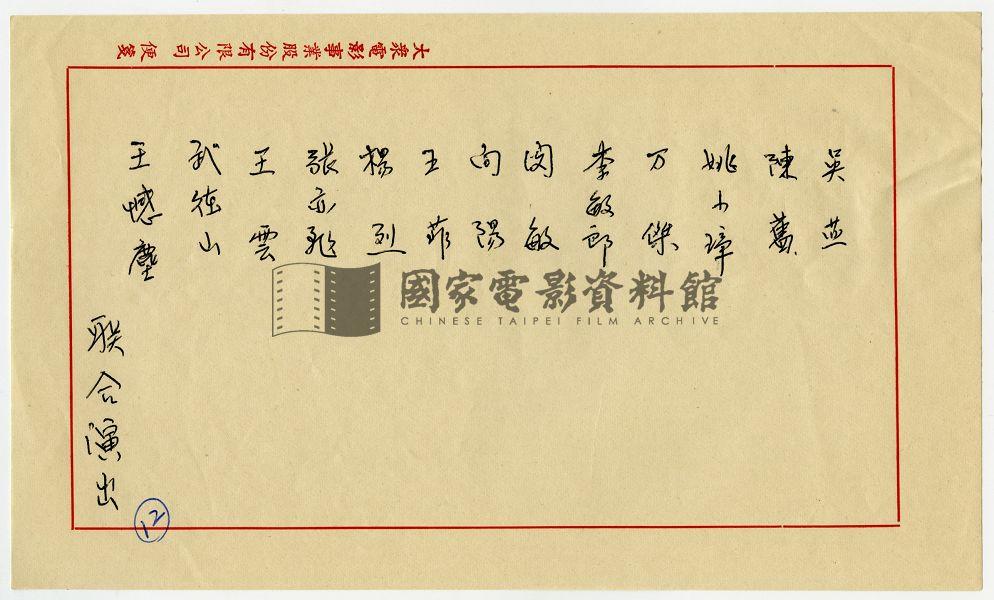 大衆電影事業股份有限公司 便箋
吳燕
陳舊
姚小璋
万傑
李敏郎
閔敏
向陽
王菲
楊烈
張亦飛
王雲
武德山
王憾塵
聯合演出
12
國家電影資料館
CHINESE TAIPEI FILM ARCHIVE